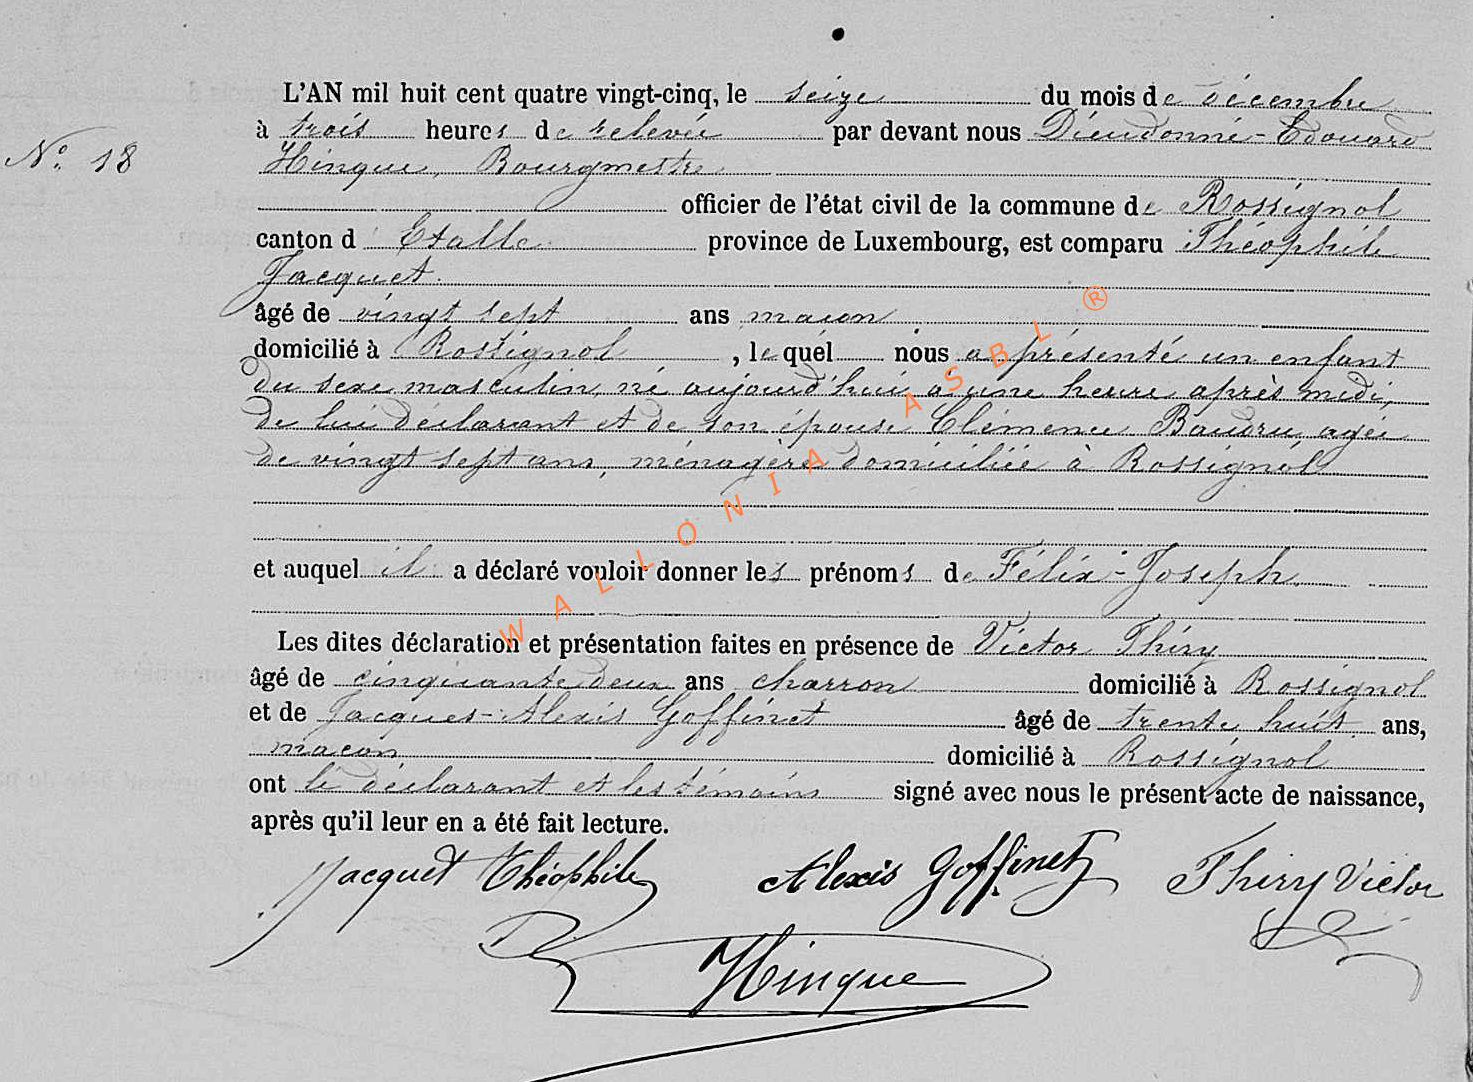 L'AN mil huit cent quatre vingt-cinq, le seize du mois de décembre
à trois heures de relevée par devant nous Dieudonné-Edouard
N° 18
Hinque, Bourgmestre
officier de l'état civil de la commune de Rossignol
canton d Etalle province de Luxembourg, est comparu Théophile
Jacquet
âgé de vingt sept ans maçon
domicilié à Rossignol, lequel nous a présenté un enfant
du sexe masculin, né aujourd'hui à une heure après midi,
de lui déclarant et de son épouse Clémence Baudru, agée
de vingt sept ans, ménagère domiciliée à Rossignol
et auquel il a déclaré vouloir donner les prénoms de Félix-Joseph
Les dites déclaration et présentation faites en présence de Victor Thiry
âgé de cinquante deux ans charron domicilié à Rossignol
et de Jacques-Alexis Goffinet âgé de trente huit ans,
maçon domicilié à Rossignol
ont le déclarant et les témoins signé avec nous le présent acte de naissance,
après qu'il leur en a été fait lecture.
Jacquet Théophile Alexis Goffinet Thiry Victor
Hinque
WALLONIA ASBL ®